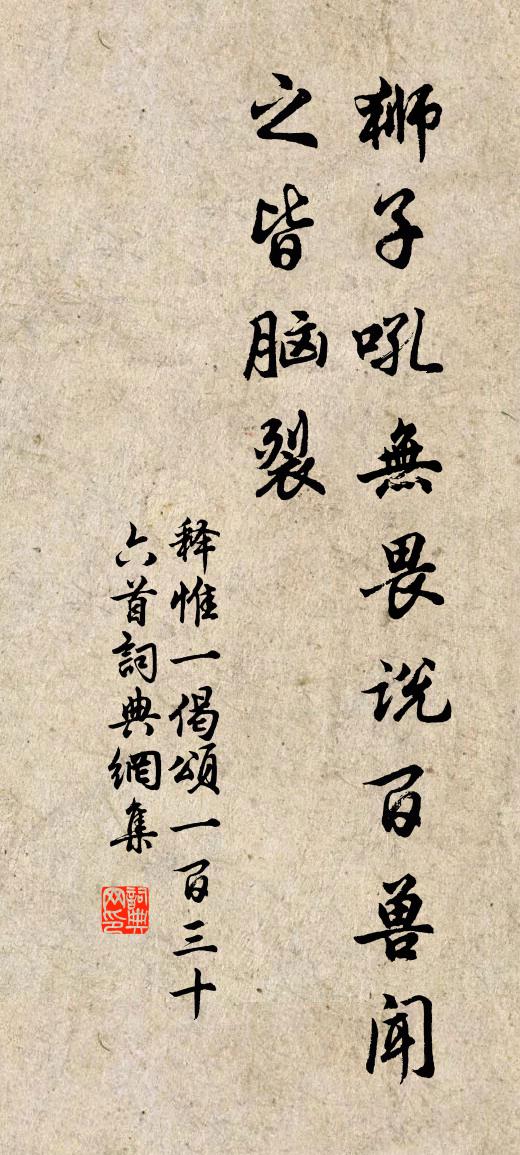 狮子吼無畏说百兽闻
之皆脑裂
释惟一偈頌一百三十
六首詞典網集
詞典
网印